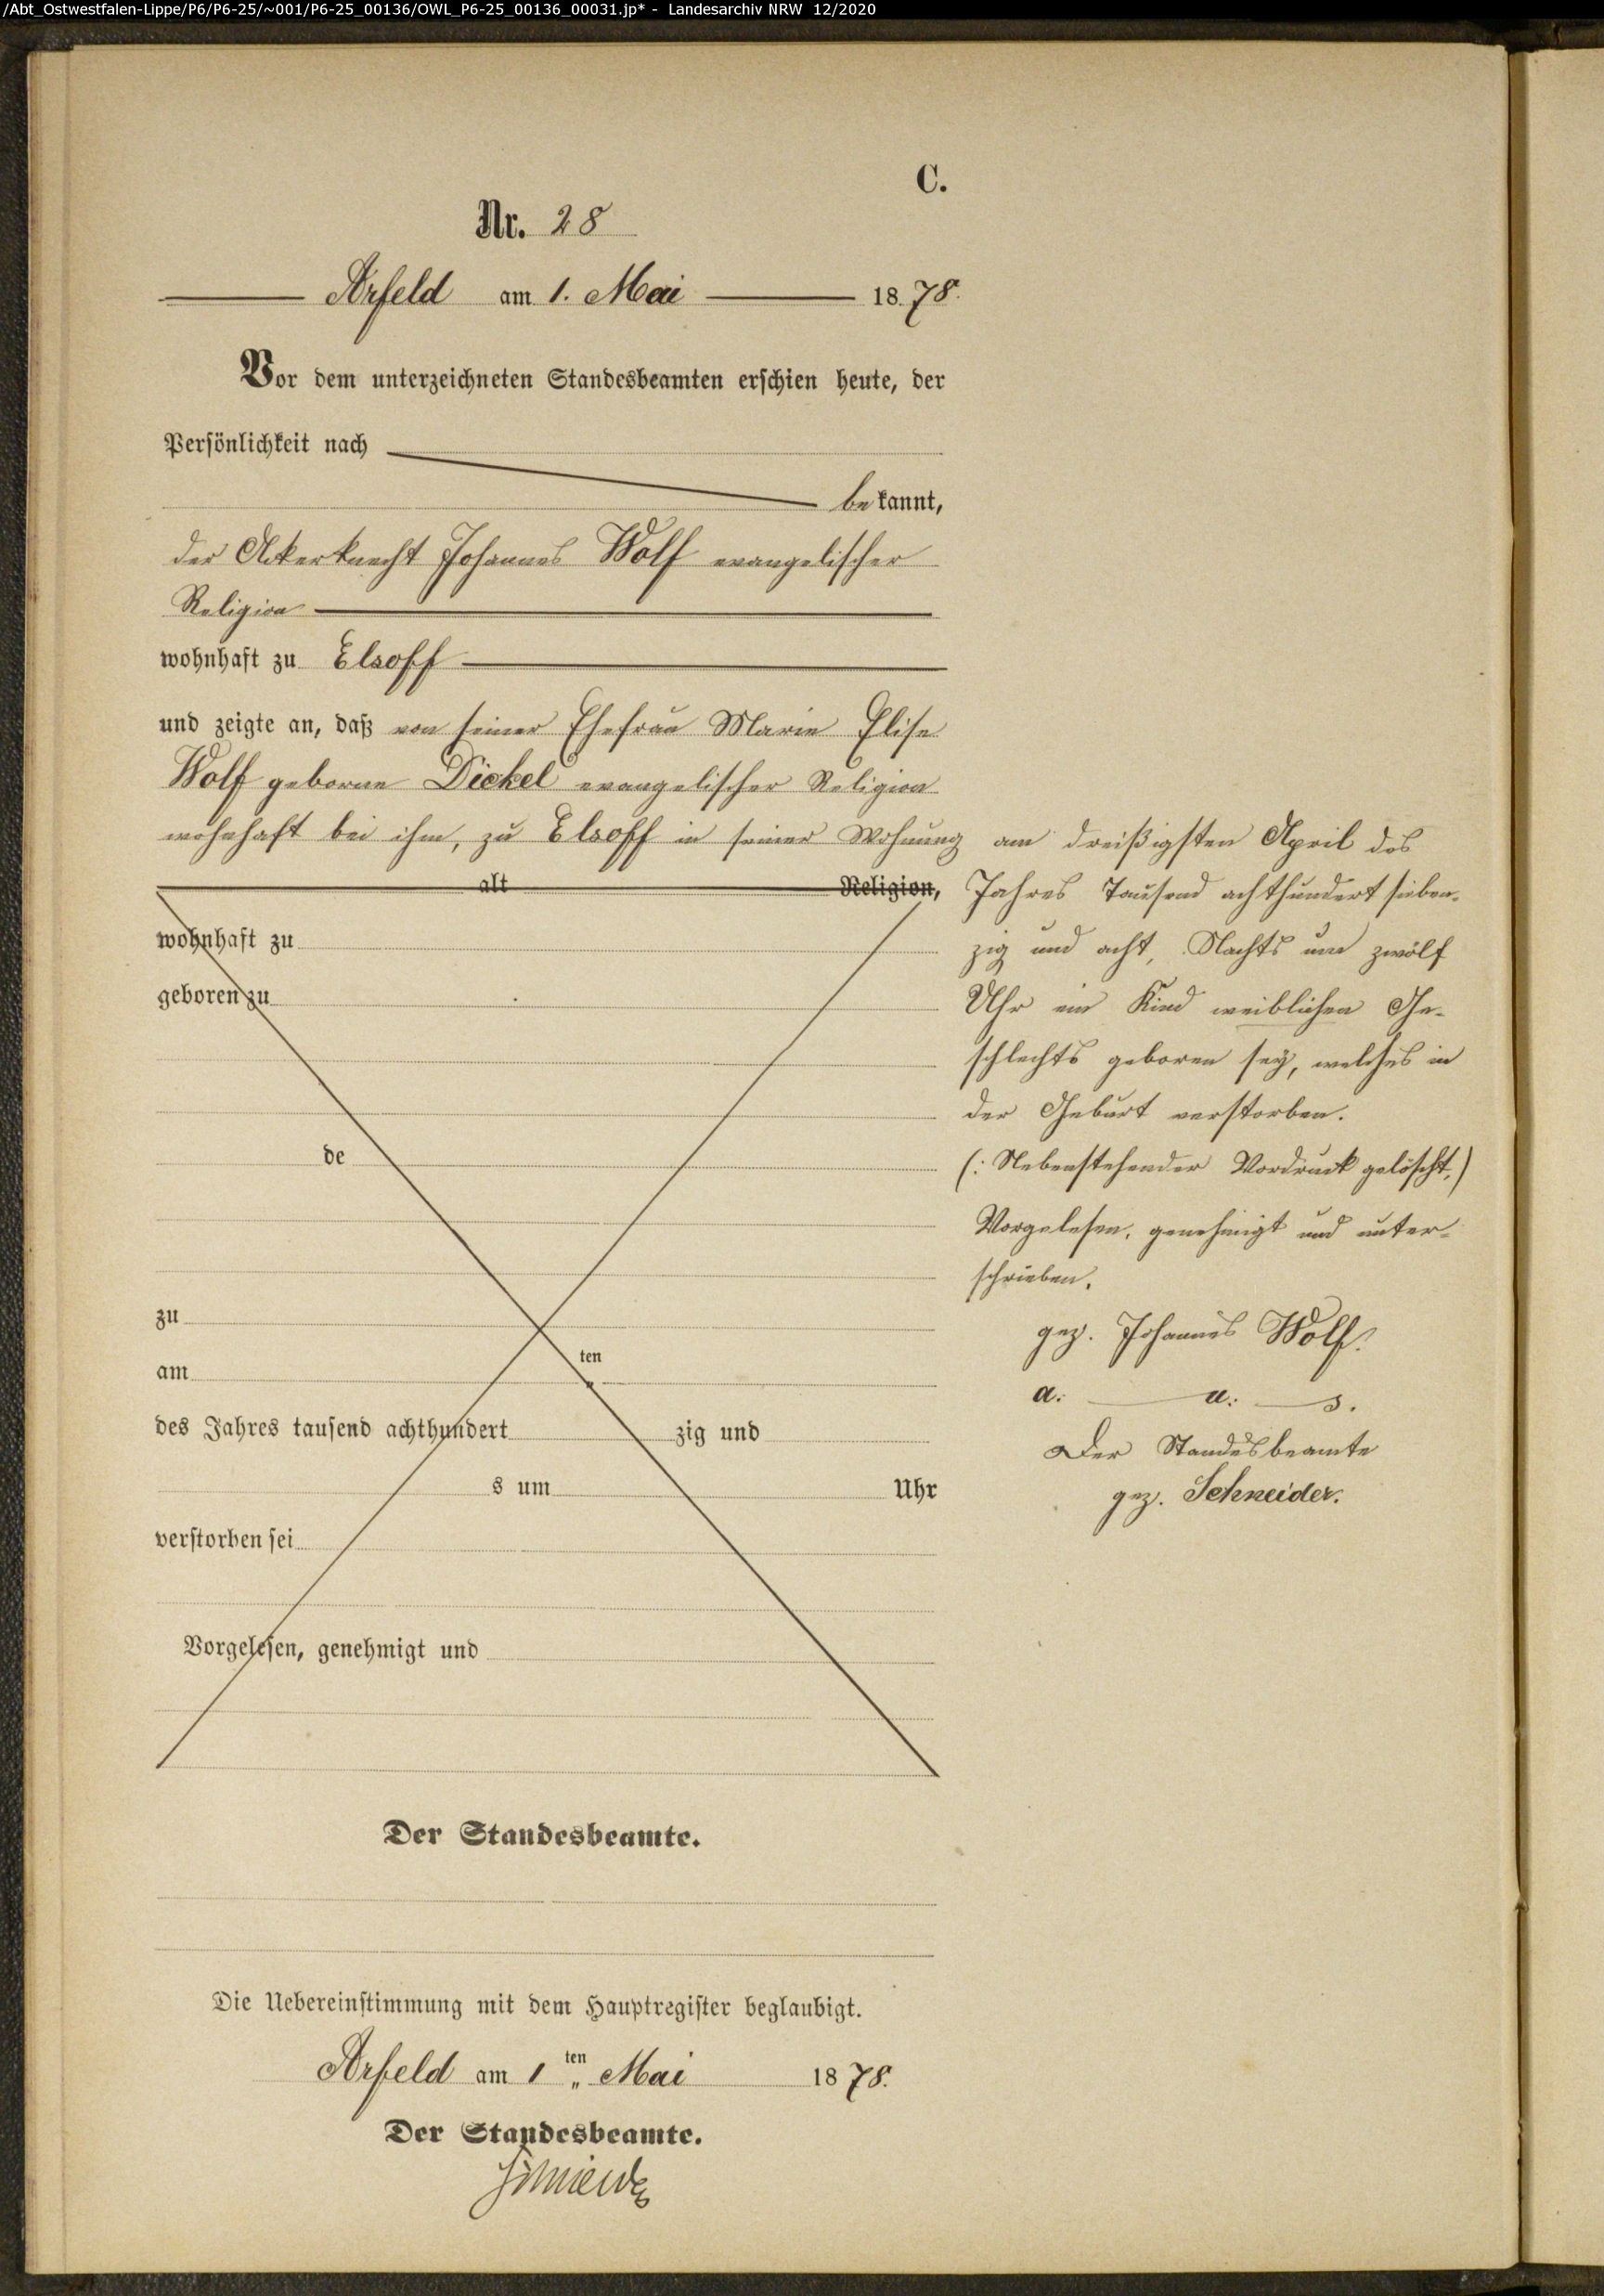 /Abt_Ostwestfalen-Lippe/P6/P6-25/~001/P6-25_00136/OWL_P6-25_00136_00031.jp* - Landesarchiv NRW 12/2020
C.
Nr. 28
Arfeld am 1. Mai 1878.
Vor dem unterzeichneten Standesbeamten erschien heute, der
Persönlichkeit nach
bekannt,
der Ackerknecht Johannes Wolf evangelischer
Religion
wohnhaft zu Elsoff
und zeigte an, daß von seiner Ehefrau Marie Elise
Wolf geborne Dickel evangelischer Religion
wohnhaft bei ihm, zu Elsoff in seiner Wohnung
alt Religion,
wohnhaft zu
geboren zu
de
zu
am ten
des Jahres tausend achthundert zig und
s um Uhr
verstorben sei
Vorgelesen, genehmigt und
am dreißigsten April des
Jahres Tausend achthundert sieben-
zig und acht, Nachts um zwölf
Uhr ein Kind weiblichen Ge-
schlechts geboren sey, welches in
der Geburt verstorben.
(: Nebenstehender Vordruck gelöscht.)
Vorgelesen, genehmigt und unter-
schrieben.
gez. Johannes Wolf.
a: u: s.
Der Standesbeamte
gez. Schneider.
Der Standesbeamte.
Die Uebereinstimmung mit dem Hauptregister beglaubigt.
Arfeld am 1ten Mai 1878.
Der Standesbeamte.
Schneider